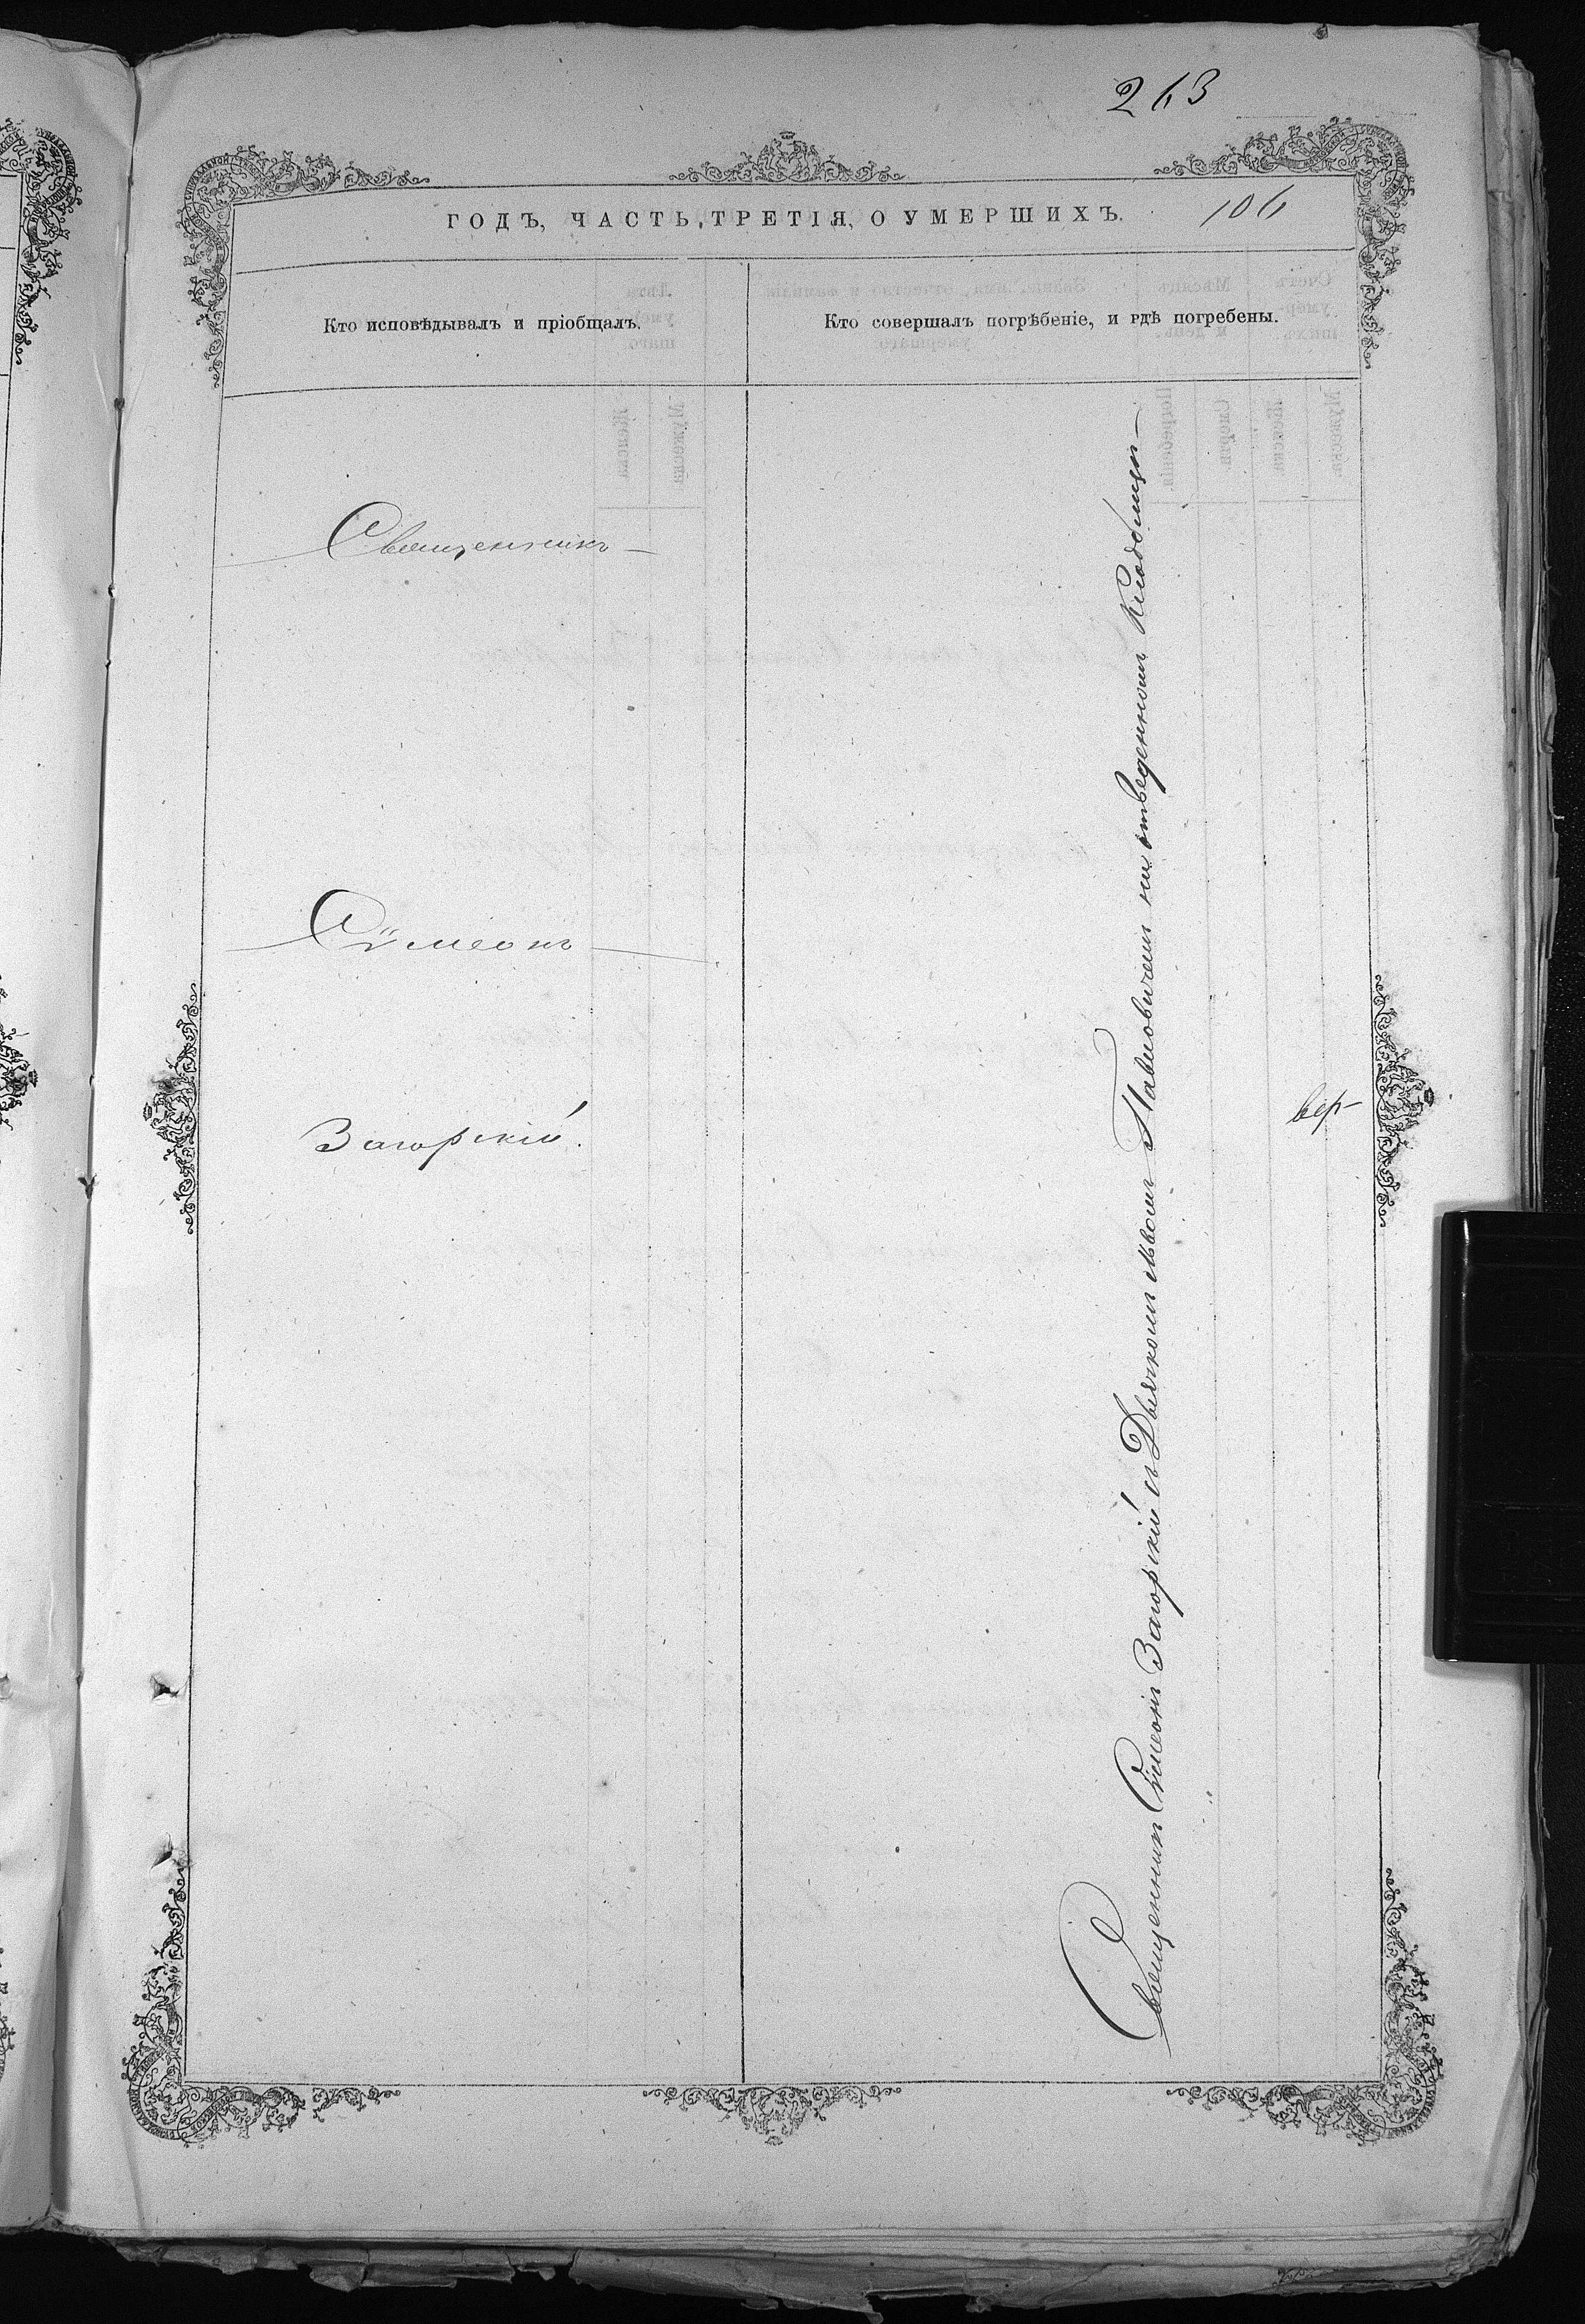 263
ГОДЪ, ЧАСТЬ ТРЕТІЯ, О УМЕРШИХЪ.
106
Кто исповѣдывалъ и пріобщалъ.
Кто совершалъ погрѣбеніе, и гдѣ погребены.
Священникъ
Сѵмеонъ
Загорскій.
Священникъ Сѵмеонъ Загорскій съ Дьячкомъ Львомъ Павловичемъ на отведенномъ кладбищѣ
вер-